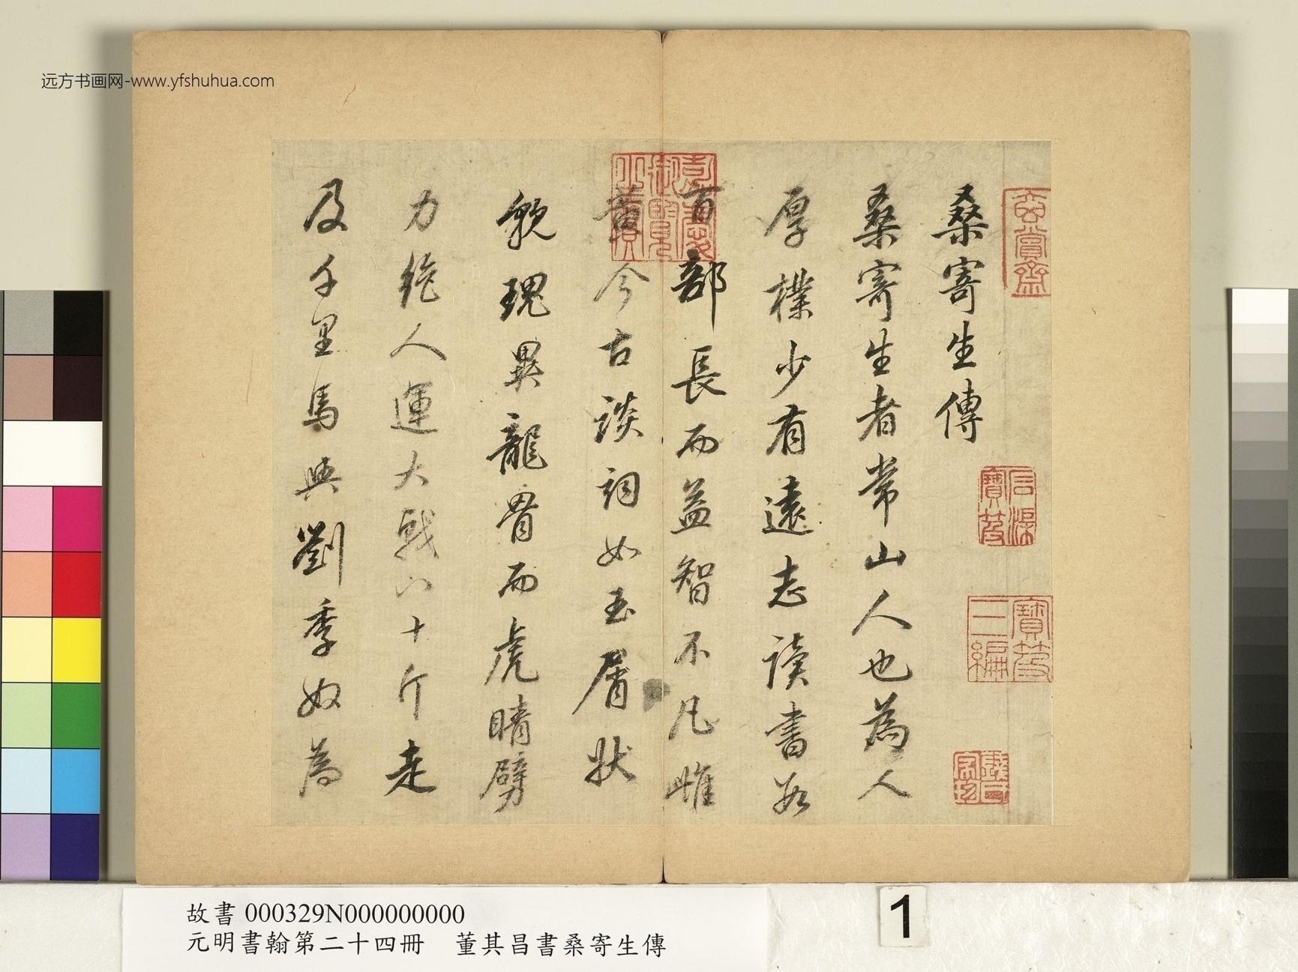 远方书画网-www.yfshuhua.com
桑寄生傳
桑寄生者常山人也為人
厚樸少有遠志讀書數
百部長而益智不凡雌
黃今古談詞如玉屑狀
貌瑰異龍骨而虎睛劈
力絶人運大戟八十斤走
及千里馬與劉季奴為
奕賞齋
寶笈
三編
故書 000329N000000000
元明書翰第二十四冊 董其昌書桑寄生傳
1